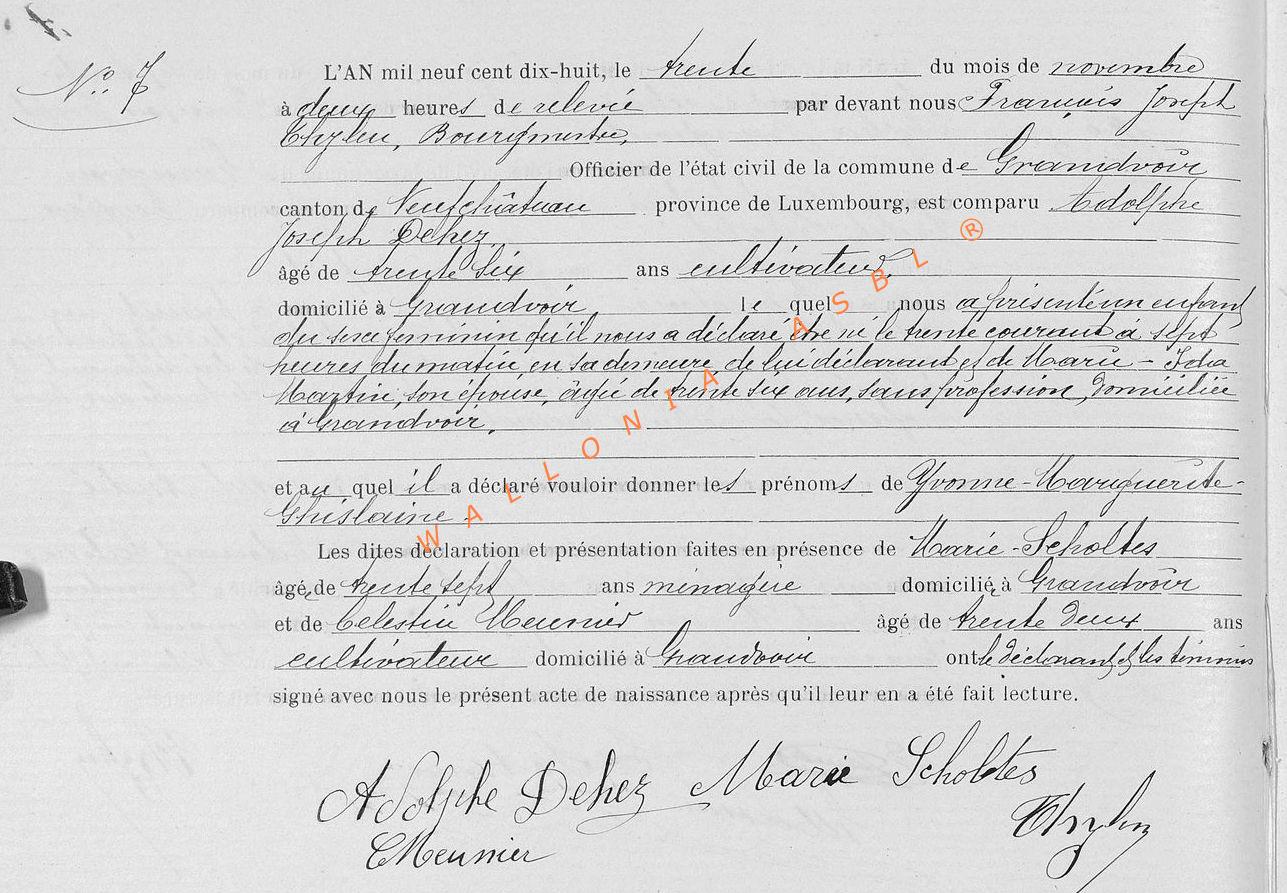 No. 7
L'AN mil neuf cent dix-huit, le trente du mois de novembre
à deux heures de relevée par devant nous François Joseph
Thylen, Bourgmestre,
Officier de l'état civil de la commune de Grandvoir
canton de Neufchâteau province de Luxembourg, est comparu Adolphe
Joseph Dehez,
âgé de trente six ans cultivateur,
domicilié à Grandvoir lequel nous a présenté un enfant
du sexe feminin qu'il nous a déclaré être né le trente courant à sept
heures du matin, en sa demeure, de lui déclarant et de Marie - Ida
Martin, son épouse, âgée de trente six ans, sans profession, domiciliée
à Grandvoir.
et au quel il a déclaré vouloir donner les prénoms de Yvonne-Marguerite-
Ghislaine.
Les dites déclaration et présentation faites en présence de Marie-Scholtes
âgée de trente sept ans ménagère domiciliée à Grandvoir
et de Celestin Meunier âgé de trente deux ans
cultivateur domicilié à Grandvoir ont le déclarant et les témoins
signé avec nous le présent acte de naissance après qu'il leur en a été fait lecture.
Adolphe Dehez Marie Scholtes
CMeunier
WALLONIA ASBL ®